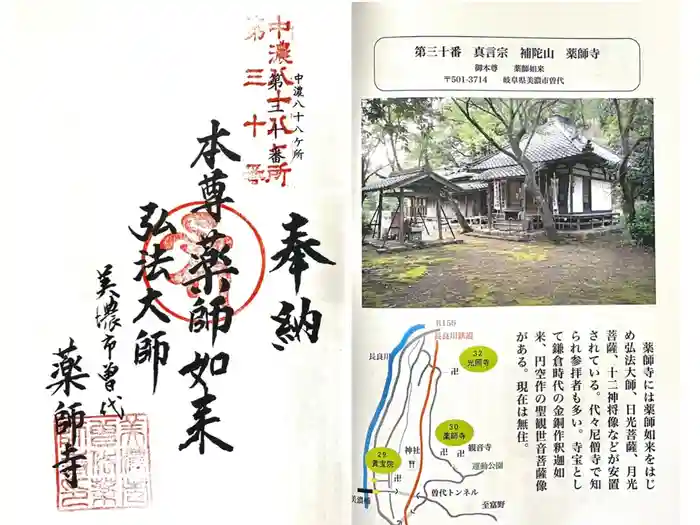 奉納
中濃八十八ケ所
第三十番
中濃八十八ケ所
第三十番
本尊 薬師如来
弘法大師
美濃市曽代
薬師寺
第三十番 真言宗 補陀山 薬師寺
御本尊 薬師如来
〒501-3714 岐阜県美濃市曽代
薬師寺には薬師如来をはじ
め弘法大師、日光菩薩、月光
菩薩、十二神将像などが安置
されている。代々尼僧寺で知
られ参拝者も多い。寺宝とし
て鎌倉時代の金銅作釈迦如
来、円空作の聖観世音菩薩像
がある。現在は無住。
R156
長良川鉄道
長良川
32
光照寺
30
薬師寺
29
貴宝院
神社
観音寺
運動公園
曽代トンネル
美濃橋
至富野